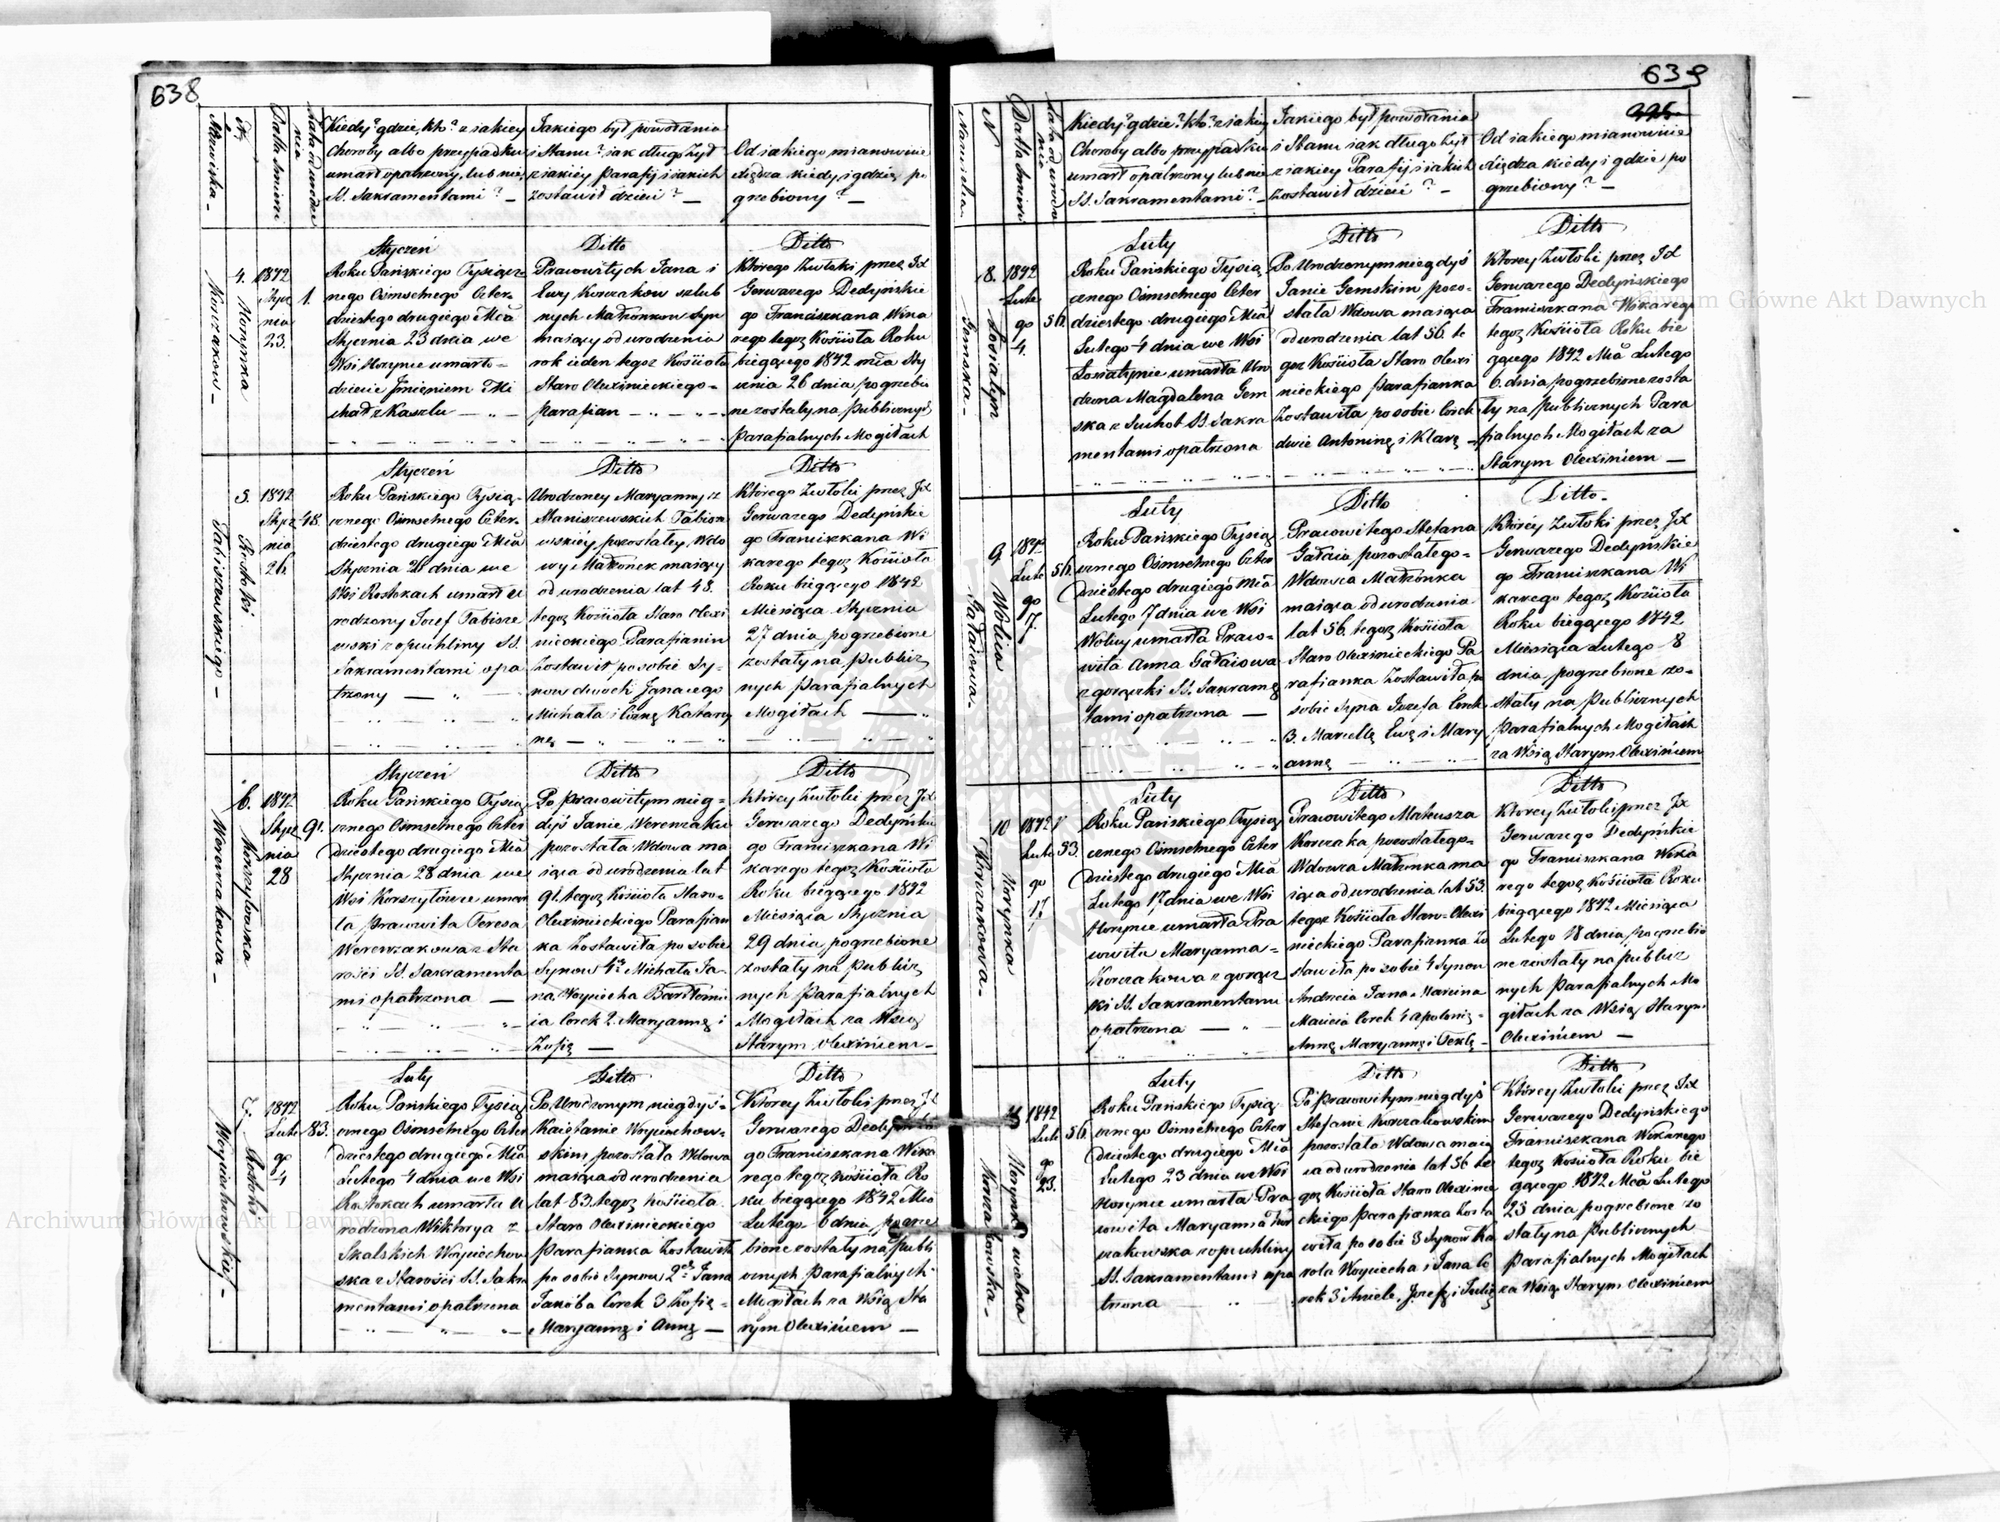 638
Nazwiska
N
Datta śmierci
Lata od urodze
nia
Kiedy? gdzie, kto? z iakiey
Choroby albo przypadku
umarł opatrzony, lub nie,
SS. Sakramentami? —
Jakiego był powołania
i Stanu? iak długo żył
z iakiey Parafij i iakich
zostawił dzieci? —
Od iakiego mianowicie
Xiędza kiedy i gdzie po
grzebiony? —
Korczakow —
4.
Horynka
1842
Stycz
nia
23.
1.
Styczeń
Roku Pańskiego Tysiącz-
nego Ośmsetnego Czter-
dziestego drugiego Mca
Stycznia 23 dnia we
Wsi Horynce umarło-
dziecie Imieniem Mi
chał z Kaszlu — „ —
Ditto
Pracowitych Jana i
Ewy Korczakow szlub
nych Małżonkow Syn
maiący od urodzenia
rok ieden tegoz Kościoła
Staro Olexinieckiego-
parafian — „ — „ —
Ditto
Którego Zwłoki przez JX
Gerwazego Dedyńskie
go Franciszkana Wika
rego tegoz Kościoła Roku
bieżącego 1842 mca Sty
cznia 26 dnia pogrzebio
ne zostały na Publicznych
Parafialnych Mogiłach
Tabiszewskiego —
5.
Rostoki
1842
Stycz
nia
26.
48.
Styczeń
Roku Pańskiego Tysią-
cznego Ośmsetnego Czter-
dziestego drugiego Mca
Stycznia 26 dnia we
Wsi Rostokach umarł U
rodzony Jozef Tabisze
wski z opuchliny SS.
Sakramentami opa
trzony — „ —
Ditto
Urodzoney Maryanny z
Staniszewskich Tabisze
wskiey pozostałey Wdo
wy Małżonek maiący
od urodzenia lat 48.
tegoz Kościoła Staro Olexi
nieckiego Parafianin
Zostawił po sobie Sy-
now dwoch Jana iego
Michała i Corkę Katarzy
nę — „ — „ —
Ditto
Którego Zwłoki przez JX
Gerwazego Dedyńskie
go Franciszkana Wi
karego tegoz Kościoła
Roku bieżącego 1842
Miesiąca Stycznia
27 dnia pogrzebione
zostały na Publicz
nych Parafialnych
Mogiłach — „
Werenczakowa —
6.
Korszyłowka
1842
Stycz
nia
28
91.
Styczeń
Roku Pańskiego Tysią
cznego Ośmsetnego Czter
dziestego drugiego Mca
Stycznia 28 dnia we
Wsi Korszyłówce umar
ła Pracowita Teresa
Werenczakowa z Sta
rości SS. Sakramenta
mi opatrzona —
Ditto
Po Pracowitym nieg-
dyś Janie Werenczaku
pozostała Wdowa ma
iąca od urodzenia lat
91. tegoz Kościoła Staro-
Olexinieckiego Parafian
ka Zostawiła po sobie
Synow 4ch Michała Ja-
na Woyciecha Bartłomie
ia Corek 2. Maryannę i
Zofię —
Ditto
Którey Zwłoki przez JX
Gerwazego Dedyńskie
go Franciszkana Wi
karego tegoz Kościoła
Roku bieżącego 1842
Miesiąca Stycznia
29 dnia pogrzebione
zostały na Publicz
nych Parafialnych
Mogiłach za Wsią
Starym Olexińcem —
Woyciechowskiey —
7.
Rostoki
1842
Lute
go
4
83.
Luty
Roku Pańskiego Tysią
cznego Ośmsetnego Czter
dziestego drugiego Mca
Lutego 4 dnia we Wsi
Rostokach umarła U
rodzona Wiktorya z
Skalskich Woyciechow
ska z Starości SS. Sakra
mentami opatrzona
Ditto
Po Urodzonym niegdyś-
Kaietanie Woyciechow-
skim pozostała Wdowa
maiąca od urodzenia
lat 83. tegoz Kościoła
Staro Olexinieckiego
Parafianka Zostawiła
po sobie Synow 2ch Jana
Jakóba Corek 3 Zofię-
Maryannę i Annę —
Ditto
Którey Zwłoki przez JX
Gerwazego Dedyńskie
go Franciszkana Wika
rego tegoz Kościoła Ro
ku bieżącego 1842 Mca
Lutego 6 dnia pogrze
bione zostały na Publi
cznych Parafialnych
Mogiłach za Wsią Sta
rym Olexińcem —
639
Nazwiska
N
Datta śmierci
Lata od urodze
nia
Kiedy? gdzie? kto? z iakiey
Choroby albo przypadku
umarł opatrzony lub nie
SS. Sakramentami? —
Jakiego był powołania
i Stanu iak długo żył
z iakiey Parafij i iakich
zostawił dzieci? —
Od iakiego mianowicie
Xiędza kiedy i gdzie po
grzebiony? —
Gemska —
8.
Łosiatyn
1842
Lute
go
4.
56.
Luty
Roku Pańskiego Tysią
cznego Ośmsetnego Czter
dziestego drugiego Mca
Lutego 4 dnia we Wsi
Łosiatynie umarła Uro
dzona Magdalena Gem
ska z Suchot SS. Sakra
mentami opatrzona
Ditto
Po Urodzonym niegdyś
Janie Gemskim pozo-
stała Wdowa maiąca
od urodzenia lat 56. te
goz Kościoła Staro Olexi
nieckiego Parafianka
Zostawiła po sobie Corek
dwie Antoninę i Klarę —
Ditto
Którey Zwłoki przez JX
Gerwazego Dedyńskiego
Franciszkana Wikarego
tegoz Kościoła Roku bie
żącego 1842 Mca Lutego
6. dnia pogrzebione zosta
ły na Publicznych Para
fialnych Mogiłach za
Starym Olexińcem —
Gałaiowa
9
Wolica
1842
Lute
go
7.
56.
Luty
Roku Pańskiego Tysią
cznego Ośmsetnego Czter
dziestego drugiego Mca
Lutego 7 dnia we Wsi
Wolicy umarła Praco-
wita Anna Gałaiowa
z gorączki SS. Sakramę
tami opatrzona —
Ditto
Pracowitego Stefana
Gałaia pozostałego-
Wdowca Małżonka
maiąca od urodzenia
lat 56. tegoz Kościoła
Staro Olexinieckiego Pa
rafianka Zostawiła po
sobie Syna Jozefa Corek
3. Marcellę Ewę i Mary
annę — „ —
Ditto —
Którey Zwłoki przez JX
Gerwazego Dedyńskie
go Franciszkana Wi
karego tegoz Kościoła
Roku bieżącego 1742
Miesiąca Lutego 8
dnia pogrzebione zo-
stały na Publicznych
Parafialnych Mogiłach
za Wsią Starym Olexińcem
Korczakowa —
10
Horynka
1842
Lute
go
17
53.
Luty
Roku Pańskiego Tysią
cznego Ośmsetnego Czter
dziestego drugiego Mca
Lutego 17 dnia we Wsi
Horynce umarła Pra
cowita Maryanna-
Korczakowa z gorącz
ki SS. Sakramentami
opatrzona — „
Ditto
Pracowitego Mateusza
Korczaka pozostałego-
Wdowca Małżonka ma
iąca od urodzenia lat 53.
tegoz Kościoła Staro-Olexi
nieckiego Parafianka Zo
stawiła po sobie 4 Synow
Andrzeia Jana Marcina
Macieia Corek 4 Apolonię-
Annę Maryannę i Teklę-
Ditto
Którey Zwłoki przez JX
Gerwazego Dedyńskie
go Franciszkana Wika
rego tegoz Kościoła Roku
bieżącego 1842 Miesiąca
Lutego 18 dnia pogrzebio
ne zostały na Publicz
nych Parafialnych Mo
giłach za Wsią Starym
Olexińcem —
Korczakowska —
11
Horynka
1842
Lute
go
23.
56.
Luty
Roku Pańskiego Tysią-
cznego Ośmsetnego Czter
dziestego drugiego Mca
Lutego 23 dnia we Wsi
Horynce umarła Pra
cowita Maryanna Kor
czakowska z opuchliny
SS. Sakramentami opa
trzona
Ditto
Po Pracowitym niegdyś
Stefanie Korczakowskim
pozostała Wdowa maią
ca od urodzenia lat 56 te
goz Kościoła Staro Olexinie
ckiego Parafianka Zosta
wiła po sobie 3 Synow Ka
rola Woyciecha i Jana Co
rek 3 Anielę, Jozefę i Julię
Ditto
Którey Zwłoki przez JX
Gerwazego Dedyńskiego
Franciszkana Wikarego
tegoz Kościoła Roku bie
żącego 1842 Mca Lutego
25 dnia pogrzebione zo
stały na Publicznych
Parafialnych Mogiłach
za Wsią Starym Olexińcem
Archiwum Główne Akt Dawnych
Archiwum Główne Akt Dawnych